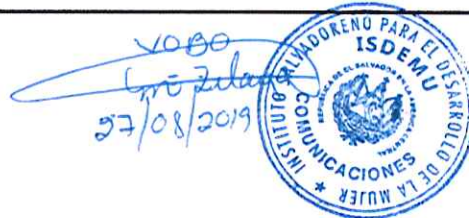 VOBO
27/08/2019
INSTITUTO SALVADOREÑO PARA EL DESARROLLO DE LA MUJER
ISDEMU
REPUBLICA DE EL SALVADOR EN LA AMERICA CENTRAL
COMUNICACIONES